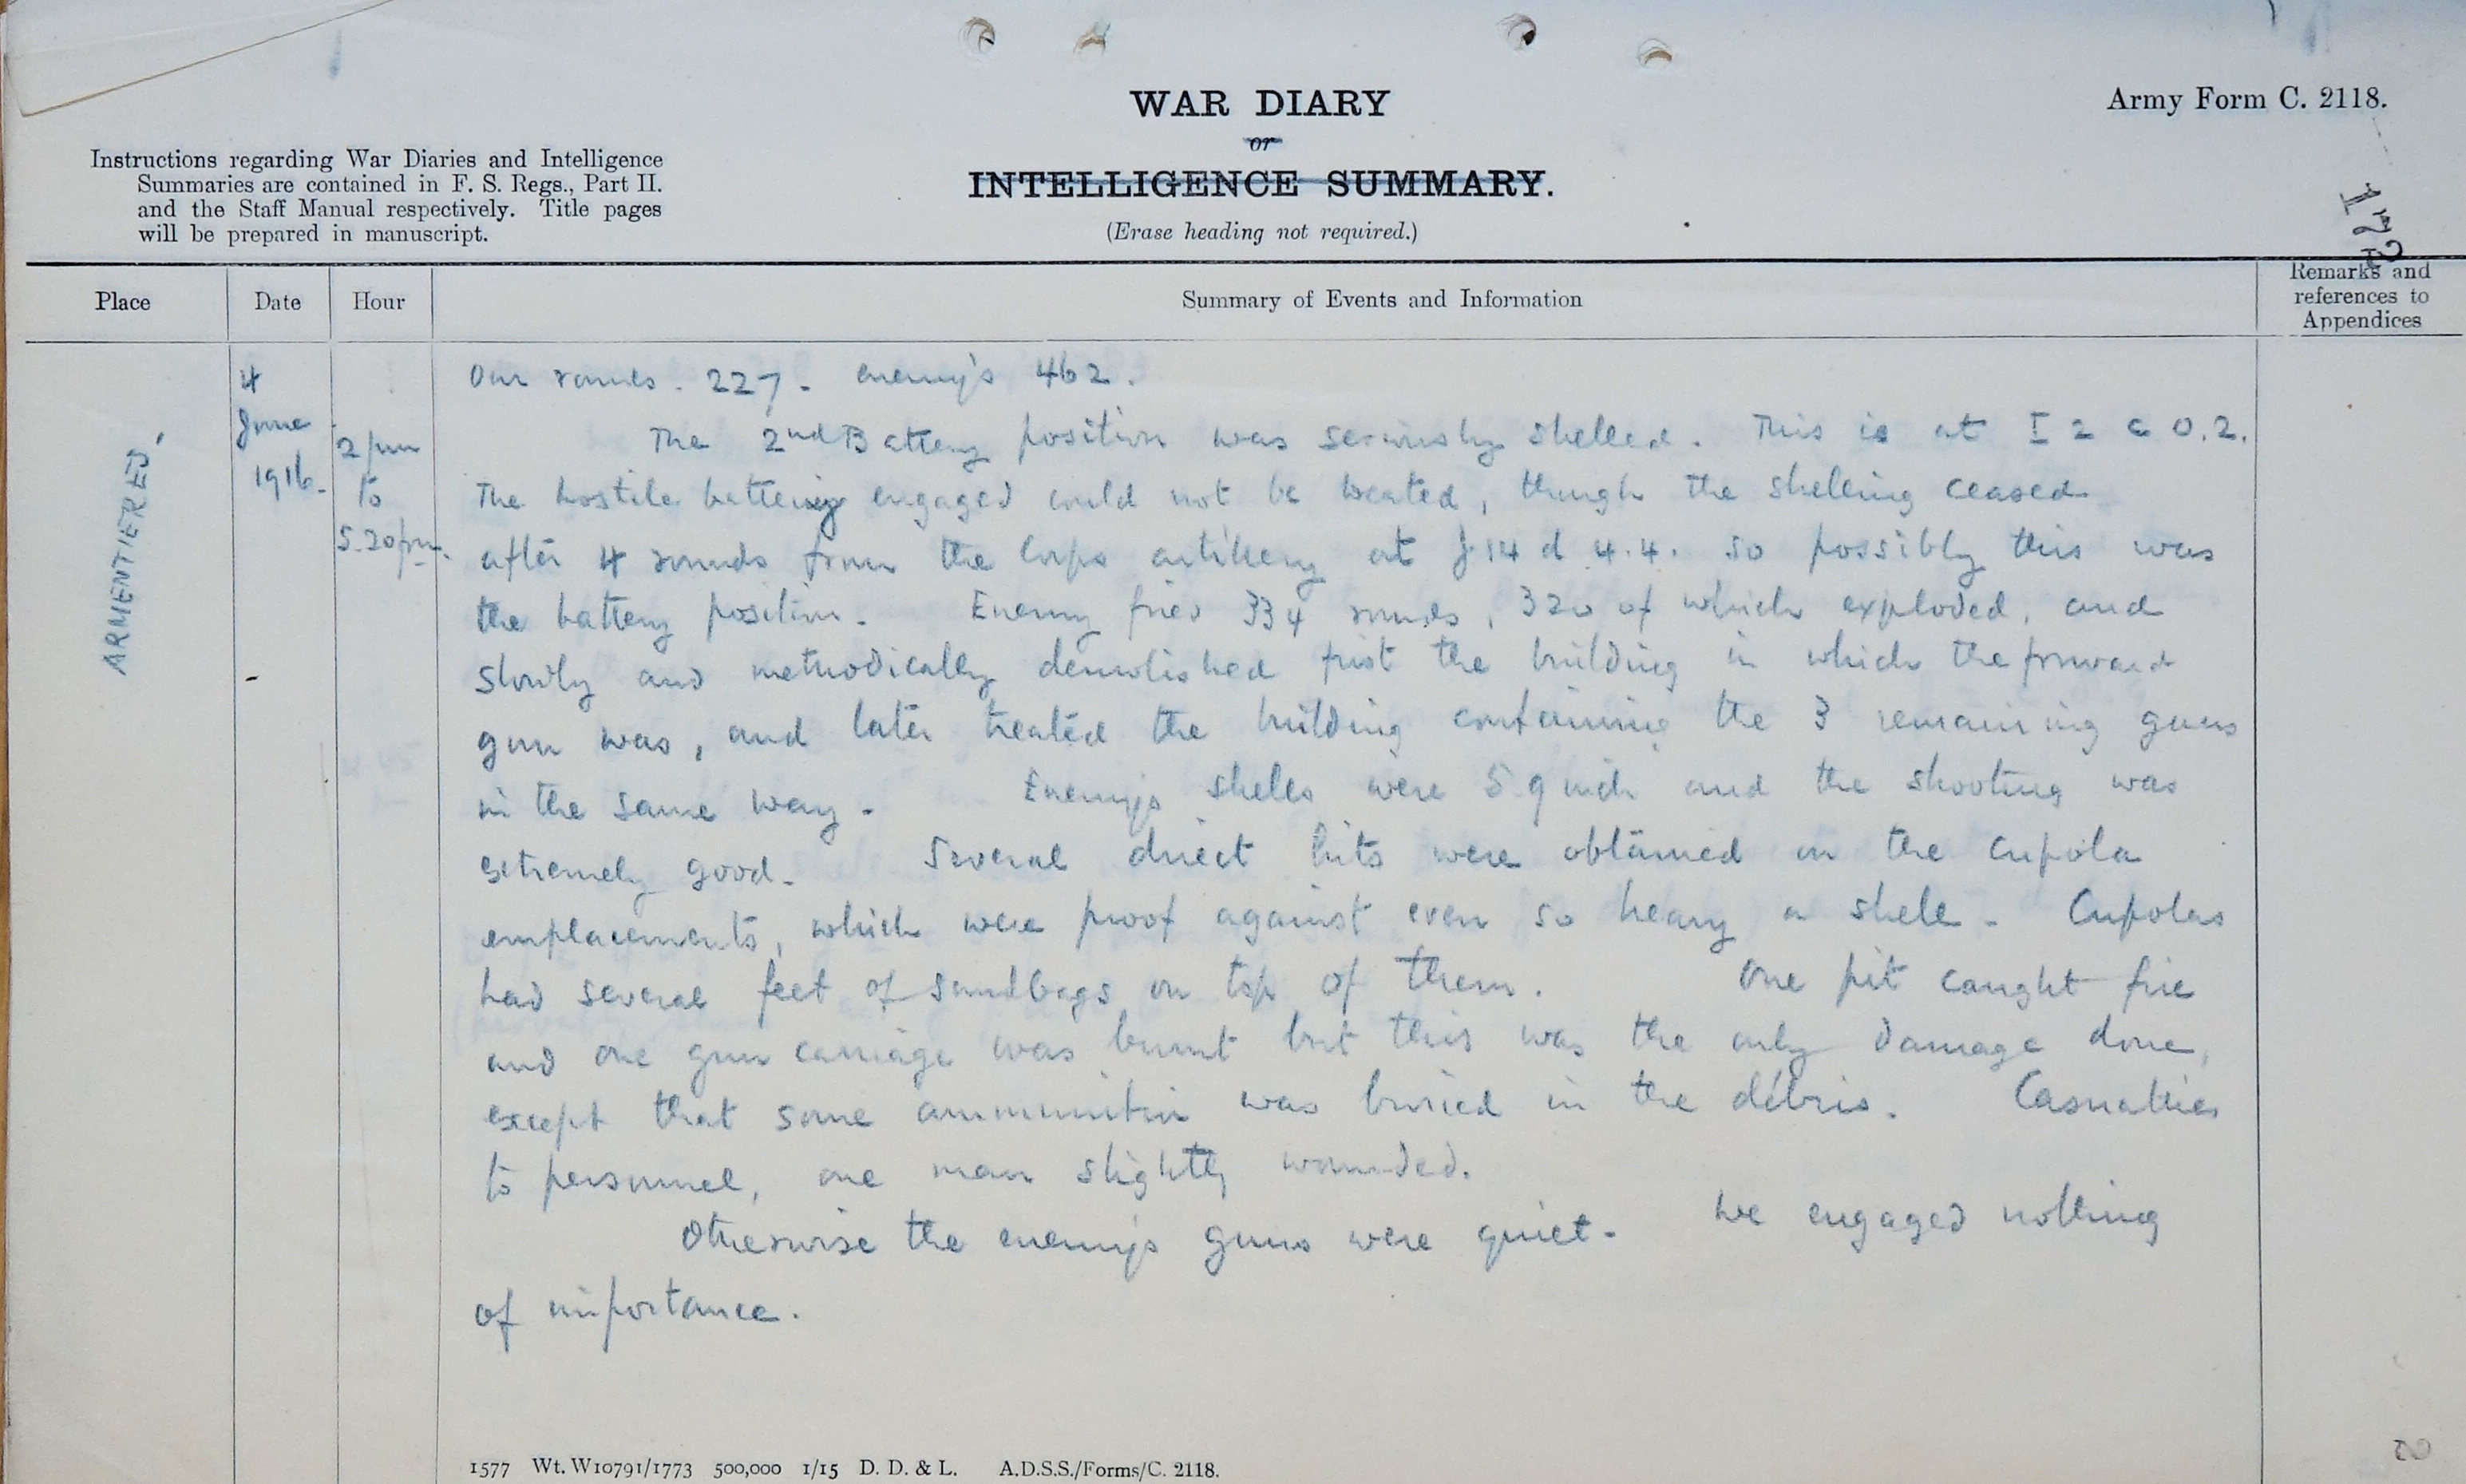 WAR DIARY
or
INTELLIGENCE SUMMARY.
(Erase heading not required.)
Army Form C. 2118.
Instructions regarding War Diaries and Intelligence
Summaries are contained in F. S. Regs., Part II.
and the Staff Manual respectively. Title pages
will be prepared in manuscript.
172
Place
Date
Hour
Summary of Events and Information
Remarks and
references to
Appendices
ARMENTIERES,
4
June
1916.
2 pm
to
5.20 pm.
Our rounds. 227. enemy's 462.
The 2nd Battery position was seriously shelled. This is at I 2 c 0.2.
The hostile battery engaged could not be located, though the shelling ceased
after 4 rounds from the Corps artillery at J 14 d 4.4. so possibly this was
the battery position. Enemy fired 334 rounds, 320 of which exploded, and
slowly and methodically demolished first the building in which the forward
gun was, and later treated the building containing the 3 remaining guns
in the same way. Enemy's shells were 5.9 inch and the shooting was
extremely good. Several direct hits were obtained on the cupola
emplacements, which were proof against even so heavy a shell. Cupolas
had several feet of sandbags on top of them. One pit caught fire
and one gun carriage was burnt but this was the only damage done,
except that some ammunition was buried in the débris. Casualties
to personnel, one man slightly wounded.
Otherwise the enemy's guns were quiet. We engaged nothing
of importance.
1577 Wt. W10791/1773 500,000 1/15 D. D. & L. A.D.S.S./Forms/C. 2118.